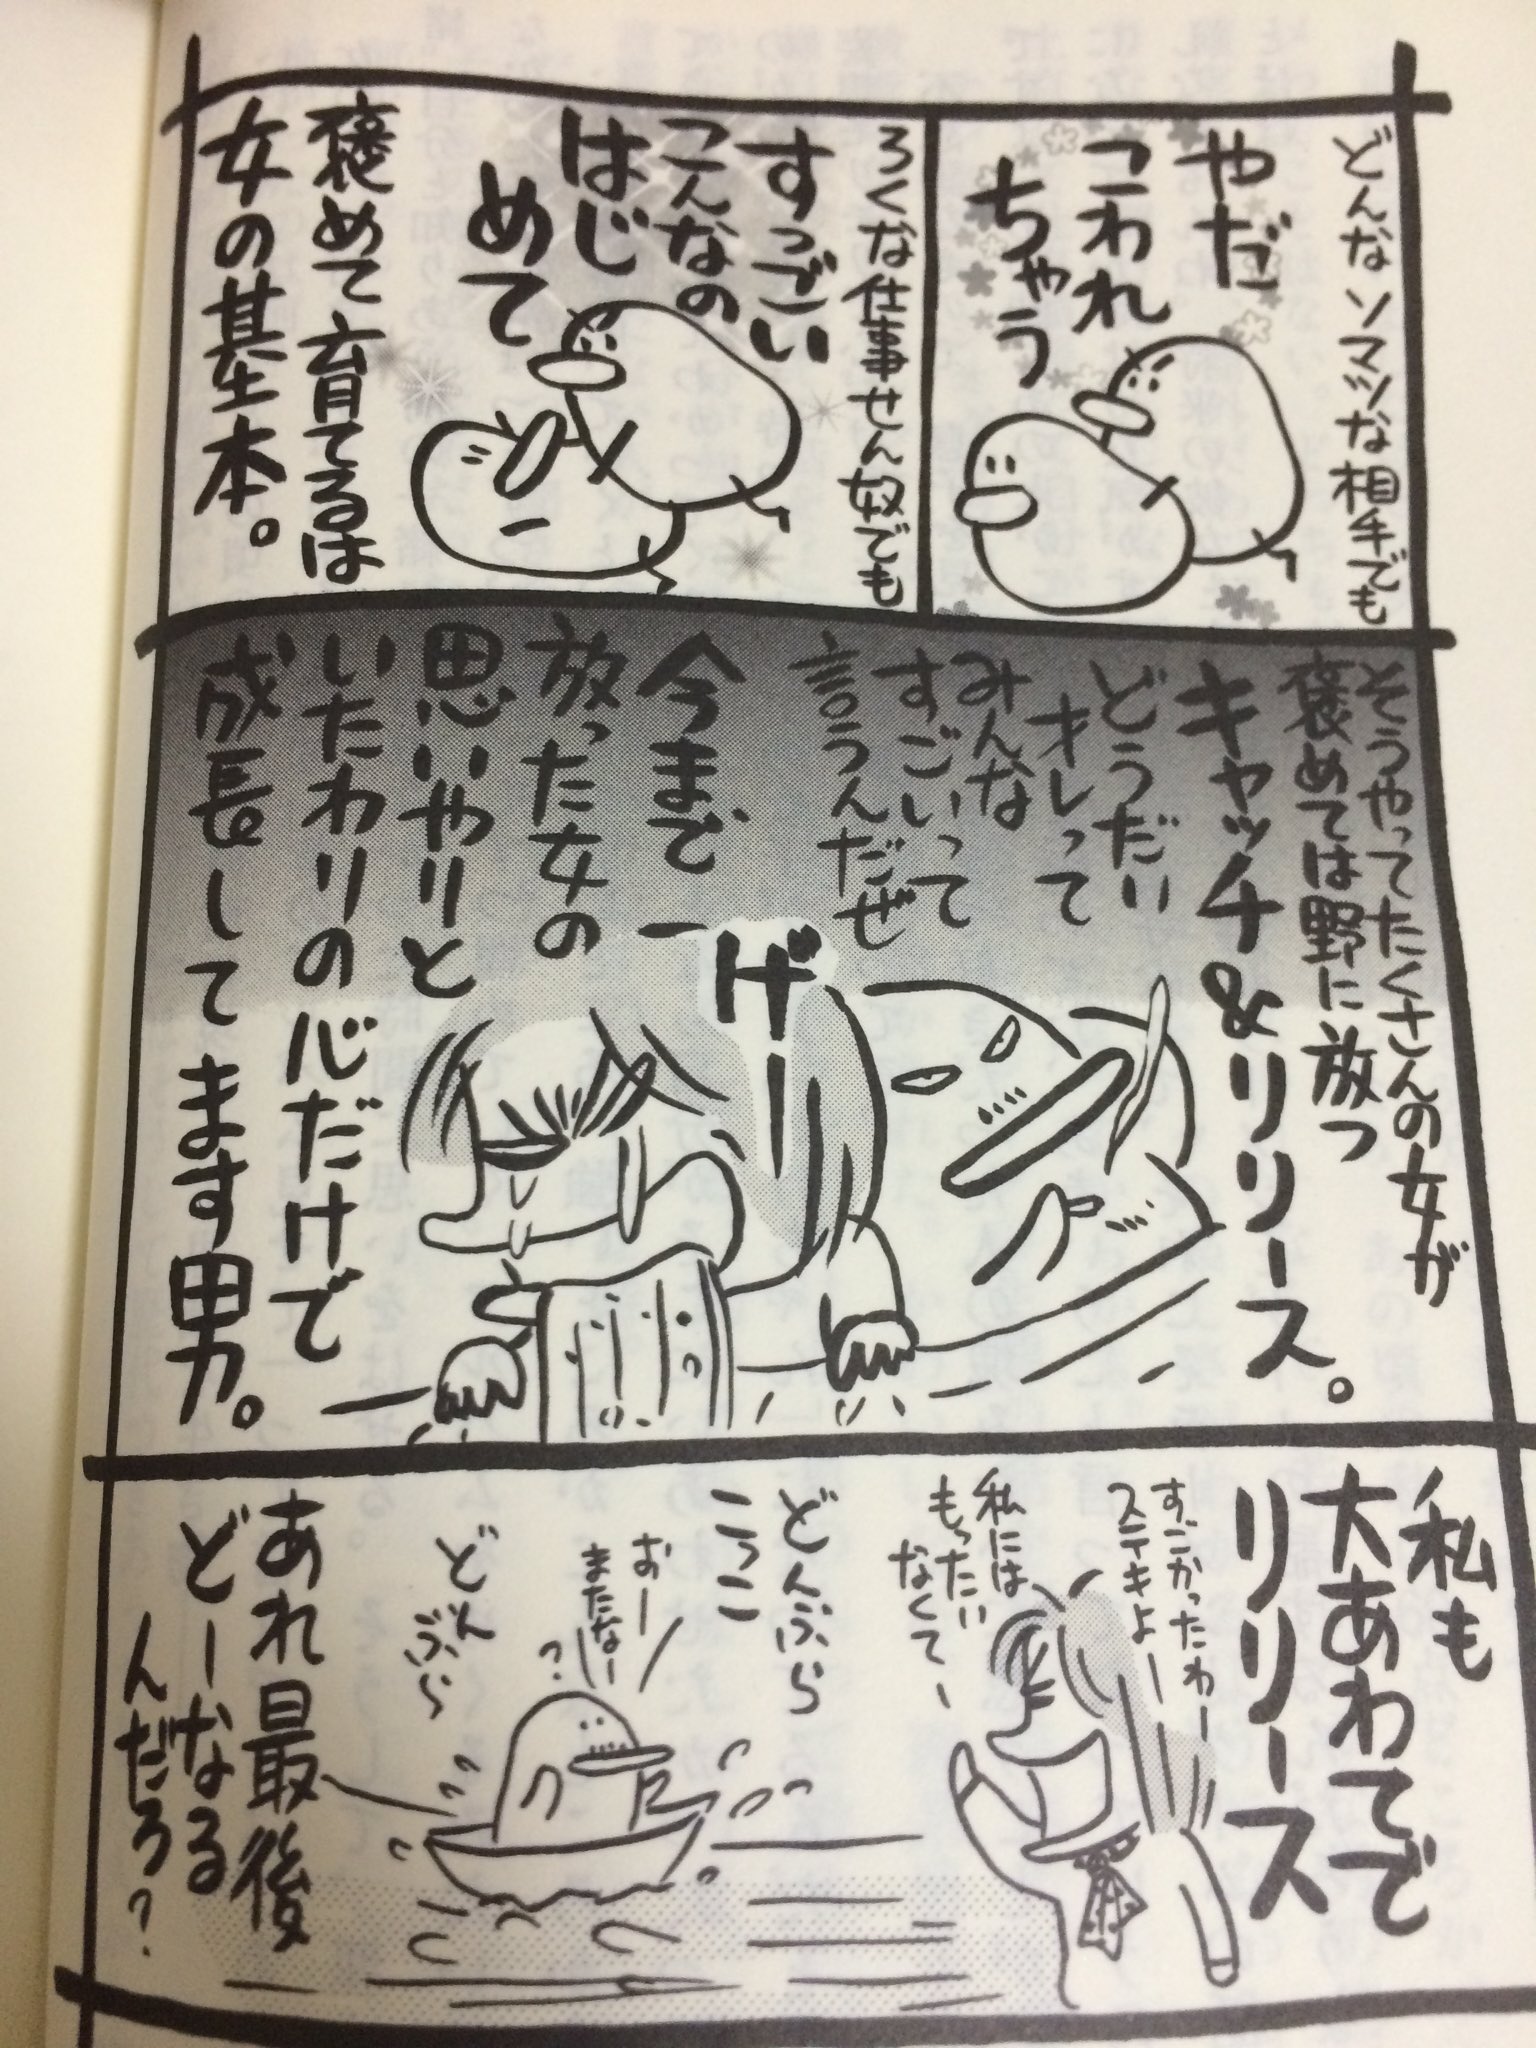 どんなソマツな相手でも
やだ
こわれ
ちゃう
ろくな仕事せん奴でも
すっごい
こんなの
はじ
めて
褒めて育てるは
女の基本。
そうやってたくさんの女が
褒めては野に放つ
キャッチ&リリース。
どうだい
オレって
みんな
すごいって
言うんだぜ
げー
今まで
放った女の
思いやりと
いたわりの心だけで
成長してます男。
私も
大あわてで
リリース
すごかったわー
ステキよー
私には
もったい
なくてー
どんぶら
こっこ
おー
またなー
?
どん
ぶら
あれ最後
どーなる
んだろ?